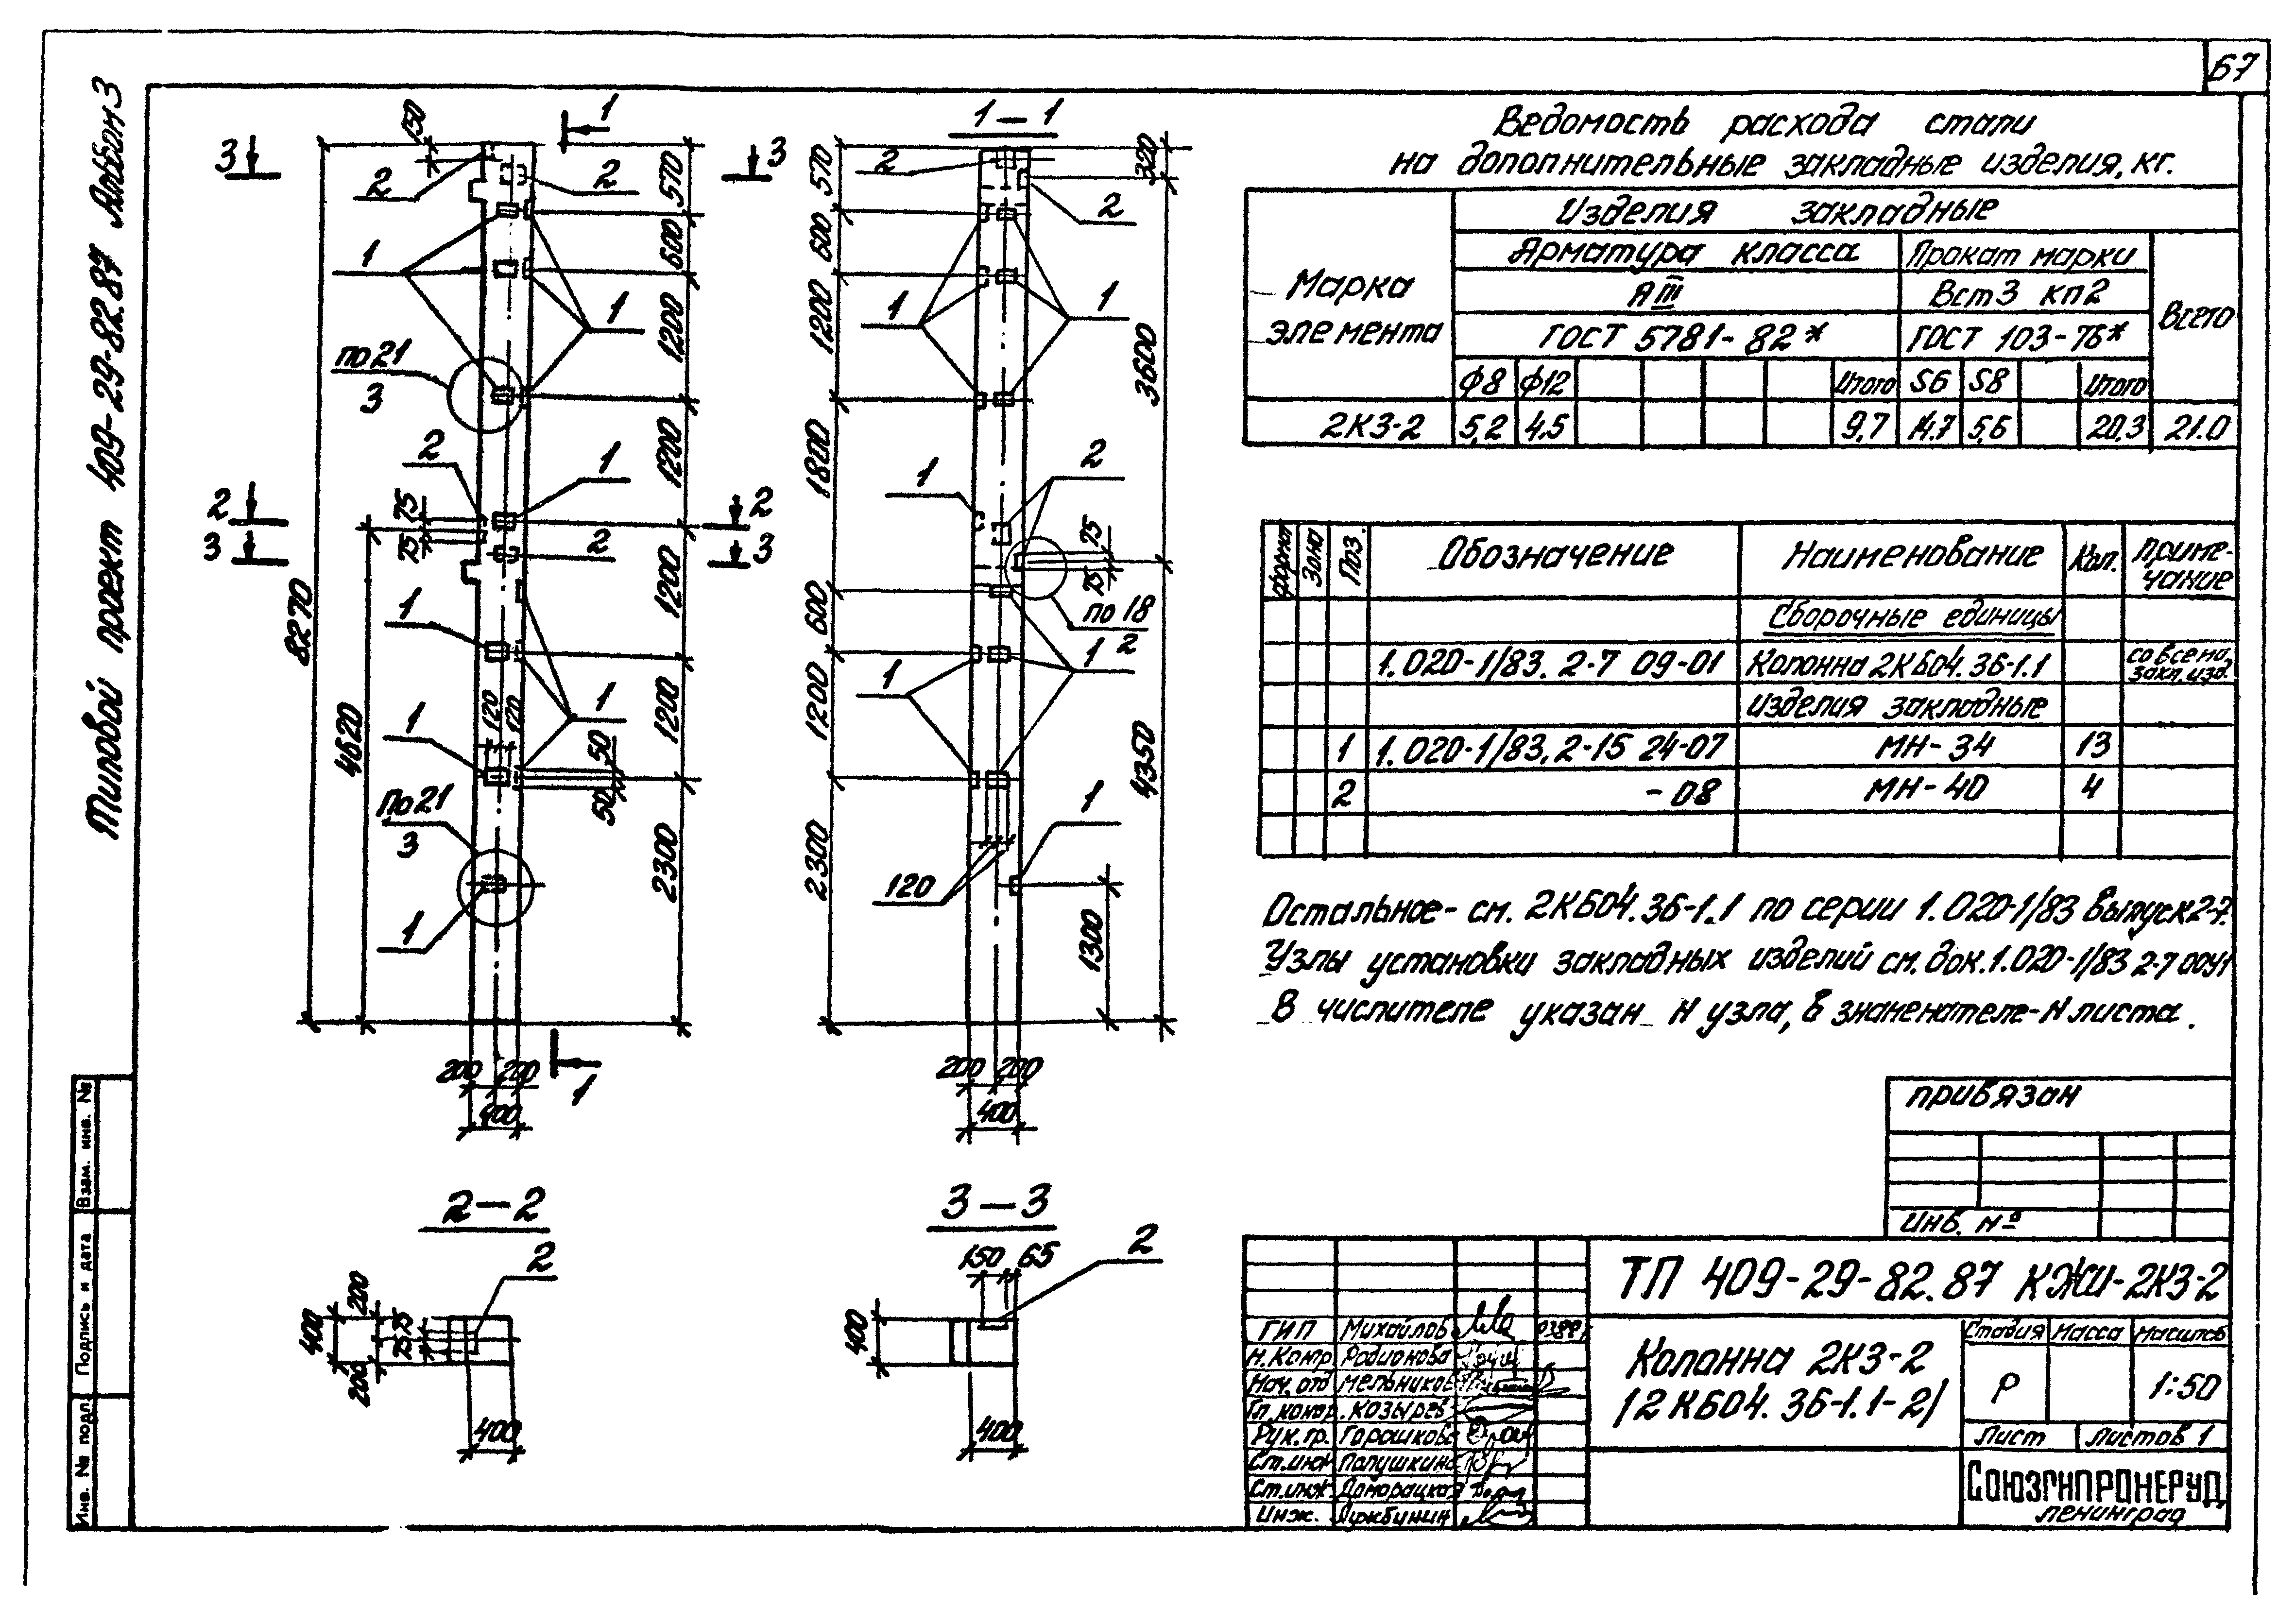 67
Типовой проект 409-29-82.87 Альбом 3
1
3 3
150
2 2
570
600
1 1
1200
по 21
3
1200
2 1
2 2
75
75
3 3
2
1200
1
8270
4620
1200
1 1
120 120
50
50
по 21
3
2300
1
200 200
400
1
1-1
570
2
320
2
600
1200
1 1
3600
1800
1 2
75
75
по 18
2
600
1 1
1200
4350
2300
120
1
1300
200 200
400
2-2
2
400
200
200
75
75
400
3-3
150 65
2
400
400
Ведомость расхода стали
на дополнительные закладные изделия, кг.
Марка элемента
Изделия закладные
Арматура класса Прокат марки Всего
АIII Вст3 кп2
ГОСТ 5781-82* ГОСТ 103-76*
Ф8 Ф12 Итого S6 S8 Итого
2К3-2 5,2 4.5 9,7 14.7 5,6 20,3 21.0
Формат Зона Поз. Обозначение Наименование Кол. Приме-
чание
Сборочные единицы
1.020-1/83. 2-7 09-01 Колонна 2КБ04.36-1.1 со всеми
закл. изд.
Изделия закладные
1 1.020-1/83.2-15 24-07 МН-34 13
2 -08 МН-40 4
Остальное - см. 2КБ04.36-1.1 по серии 1.020-1/83 выпуск 2-7.
Узлы установки закладных изделий см. док. 1.020-1/83 2-7 00У1
В числителе указан N узла, в знаменателе - N листа.
Привязан
Инв. №
ТП 409-29-82.87 КЖИ-2К3-2
ГИП Михайлов
Н.контр. Родионова
Нач. отд Мельников
Гл. констр. Козырев
Рук. гр. Горошков
Ст.инж Папушкина
Ст.инж. Доморацкая
Инж. Лужбинин
Колонна 2К3-2
/2КБ04.36-1.1-2/
Стадия Масса Масштаб
Р 1:50
Лист Листов 1
СОЮЗГИПРОНЕРУД
Ленинград
Взам. инв. №
Подпись и дата
Инв. № подл.